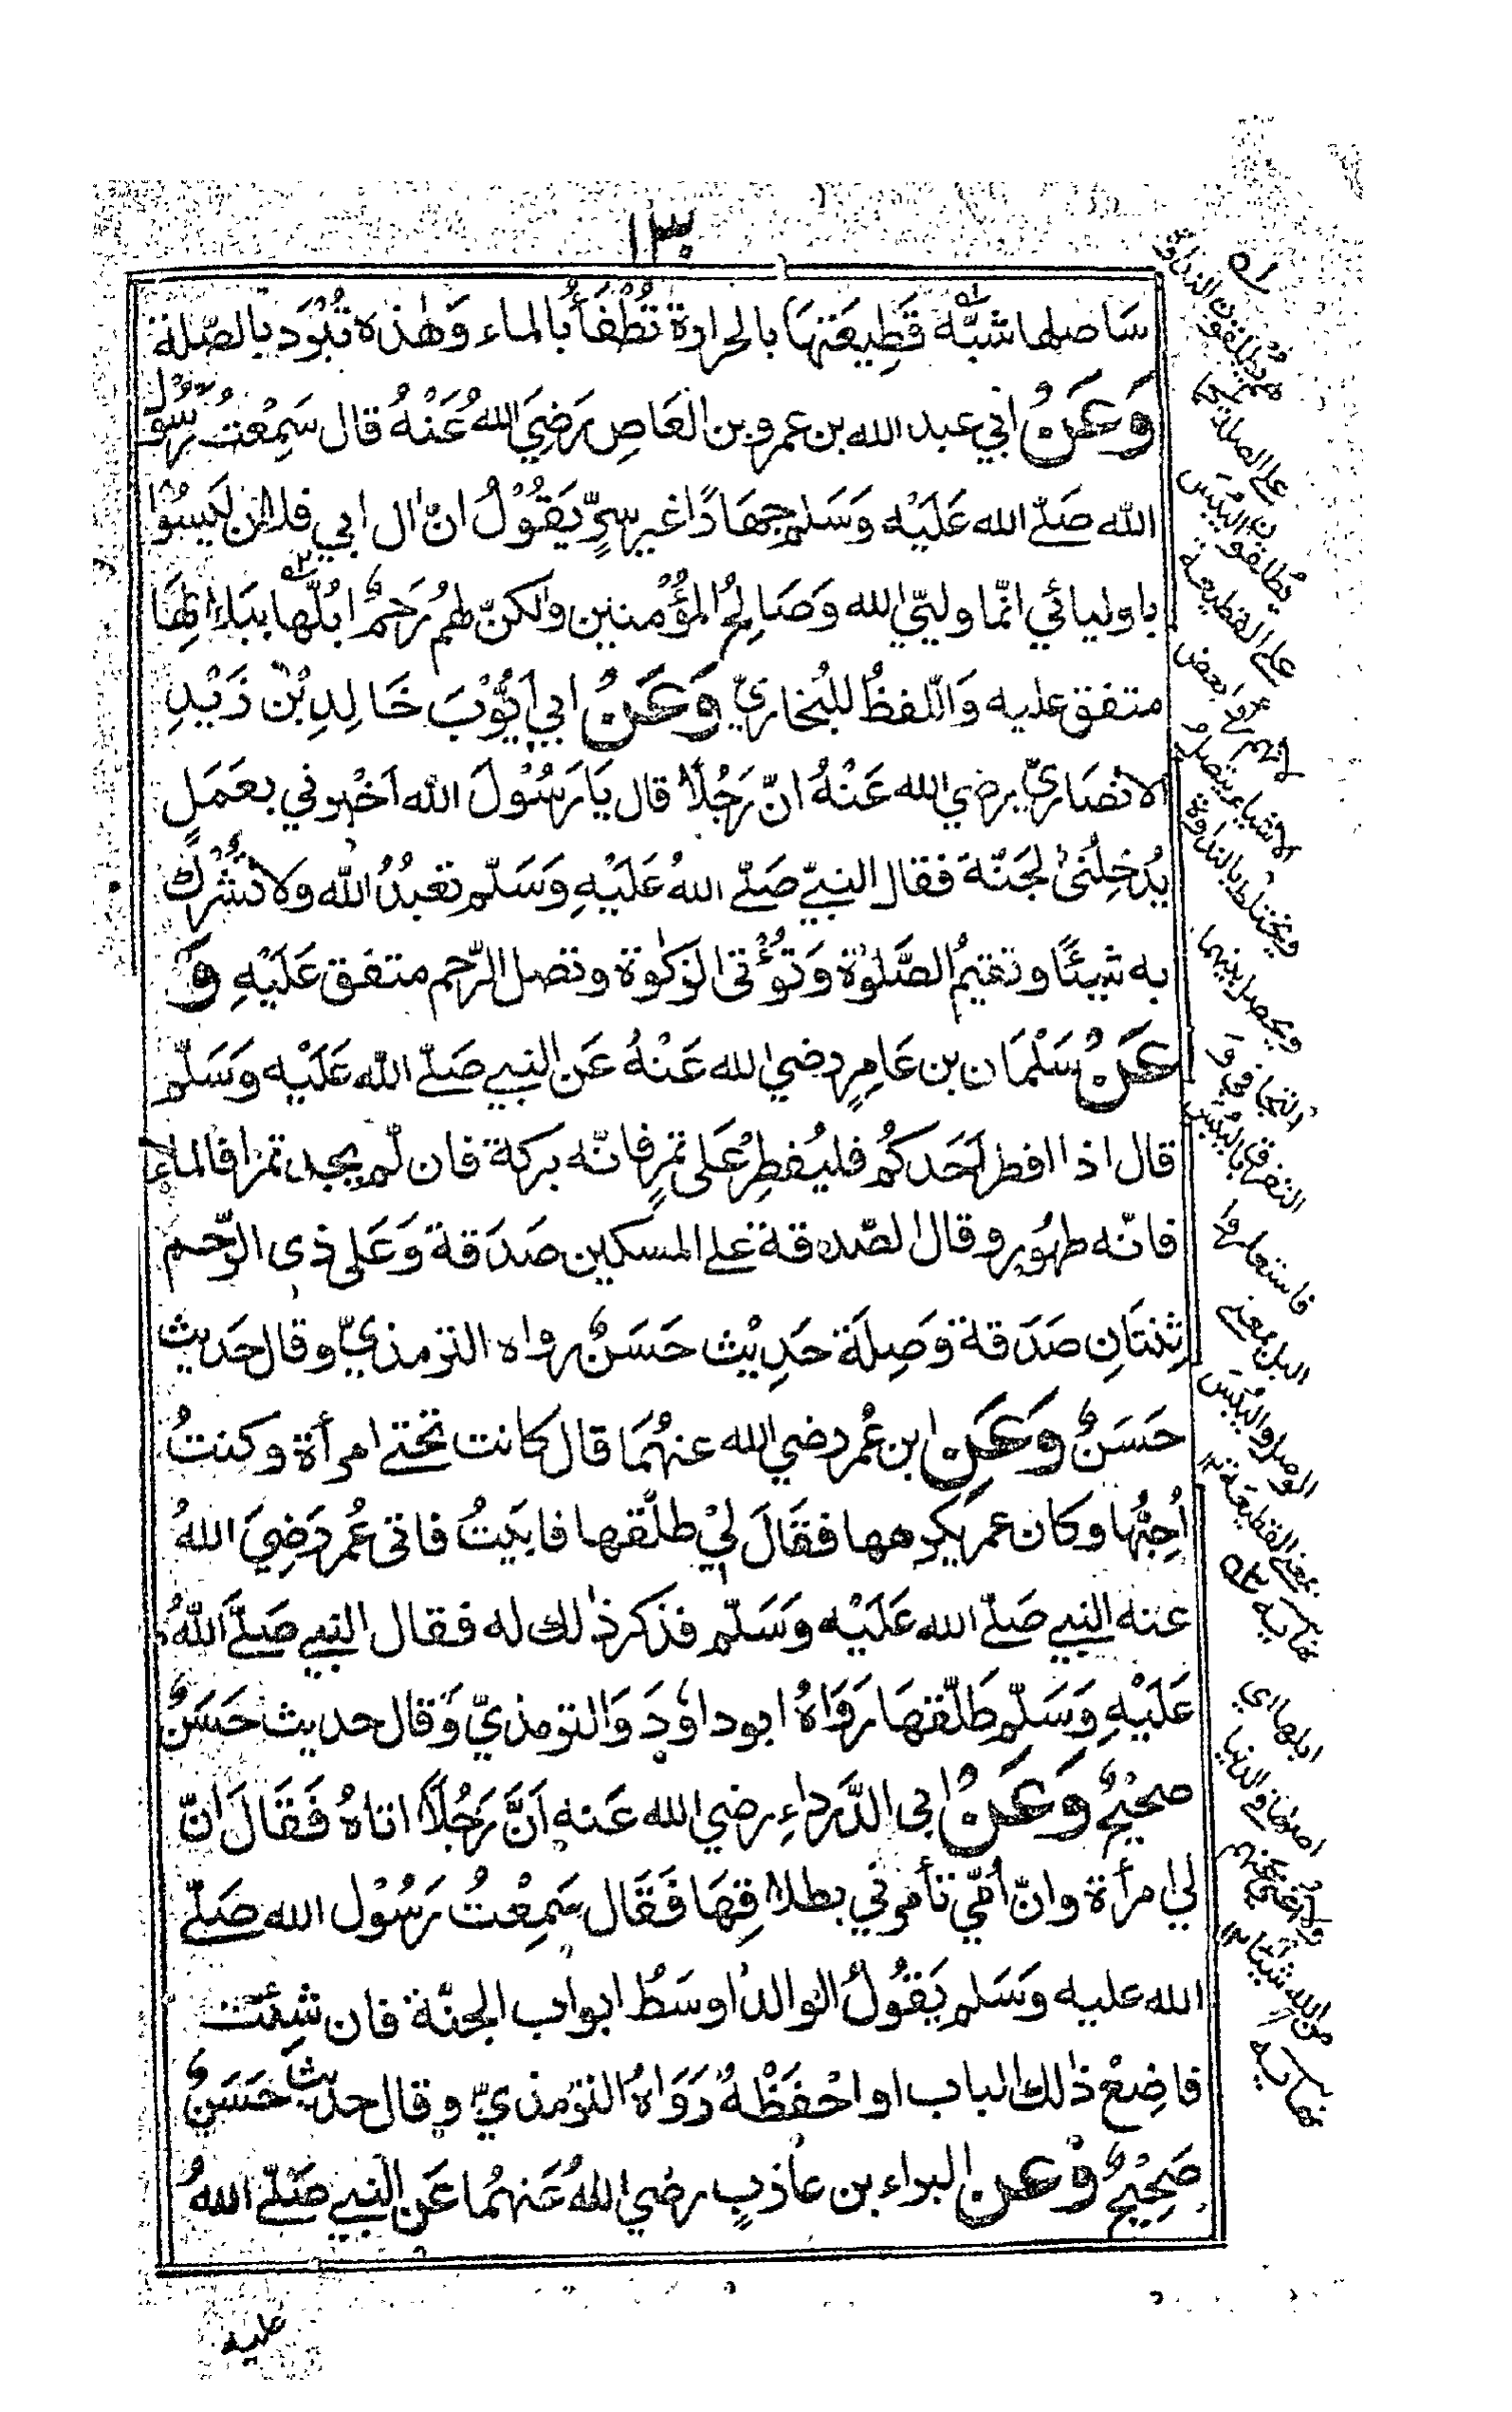 ١٣٠
سَاصلها شبَّه قَطِيعَتَهَا بالحرارة تُطْفَأُ بالماء وَهٰذه تُبَرَّد بالصّلة
وَعَنْ ابي عبد الله بن عمرو بن العَاصِ رَضِيَ اللهُ عَنْهُ قال سَمِعْتُ رَسُوْلَ
الله صَلّے الله عَلَيْه وَسَلم جِهَارًا غير سِرٍّ يَقُوْلُ انّ ال ابي فلان لَيسُوْا
باوليائي انّما وليّي الله وصَالِحُ المؤْمنين ولكنّ لهم رَحِمٌ ابُلّها ببَلَالِهَا
متفق عليه وَاللّفظُ للبُخاريّ وَعَنْ ابي اَيُّوْبَ خَالِدِ بْنْ زَيْدِ
الانصَاريّ رضي الله عَنْهُ انّ رَجُلًا قال يَا رَسُوْلَ الله اَخْبرني بعَمَلٍ
يُدخِلُنى لجَنّة فقال النبيّے صَلّے اللهُ عَلَيْهِ وَسَلّم تعبُدُ الله ولا تُشْرك
به شيئًا وتقيمُ الصَّلوٰة وَتُؤْتى الزكوٰة وتصل الرّحم متفق عَلَيْهِ وَ
عَنْ سَلْمَان بن عَامِرٍ رضي الله عَنْهُ عَن النبيے صَلّے الله عَلَيْه وَسَلّم
قال اذا افطر اَحَدكُم فليُفطِرْ عَلى تمرٍ فانّه بركة فان لّم يجد تمرًا فالماء
فانّه طهُور وقال الصّدقة علے المسكين صَدَقة وَعَلى ذى الرّحم
ثِنتَانِ صَدَقة وَصِلَة حَدِيْث حَسَنٌ رواه الترمذيّ وقال حَديث
حَسَنٌ وَعَنِ ابن عُمر رضي الله عنهُمَا قال كانت تحتے امرأة وكنتُ
اُحِبُّها وكان عمر يكرهها فقَالَ لِيْ طلّقها فابَيتُ فاتى عُمر رَضِيَ اللهُ
عنه النبيے صَلّے الله عَلَيْه وَسَلّم فذكر ذٰلك له فقال النبيے صَلَّے اللّٰهُ
عَلَيْهِ وَسَلّم طَلّقهَا رَوَاهُ ابوداوٗدَ وَالترمذيّ وَقال حديث حَسَنٌ
صحيْحٌ وَعَنْ ابى الدَّرداءِ رضي الله عَنه اَنَّ رَجُلًا اتاهُ فَقَالَ انّ
لي امرأة وانّ اُمّي تأمرني بطلاقِهَا فَقَال سَمِعْتُ رَسُوْل الله صَلّے
الله عليه وَسَلم يَقُوْلُ الوالدُ اوسَطُ ابواب الجنّة فان شِئت
فاضِعْ ذٰلك الباب او احْفَظْهُ رَوَاهُ الترمذيّ وقال حديث حَسَنٌ
صَحِيْحٌ وْعن البراء بن عاذبٍ رضي اللهُ عَنهُما عَن النبيے صَلّے اللهُ
عليه
علے الصلة
يطلقون اليُبْس
علے القطيعة
بعض
الاشياء يتصل
ويختلط بالنداوة
ويحصل بينهما
التجافي و
التفرق باليُبْس
فاستعاروا
البل بمعنے
الوصل واليُبْس
بمعنے القطيعة ١٢
نهايه
ابلها اي
اصلها في الدنيا
ولا اغني عنهم
من الله شيئا ١٢
نهايه